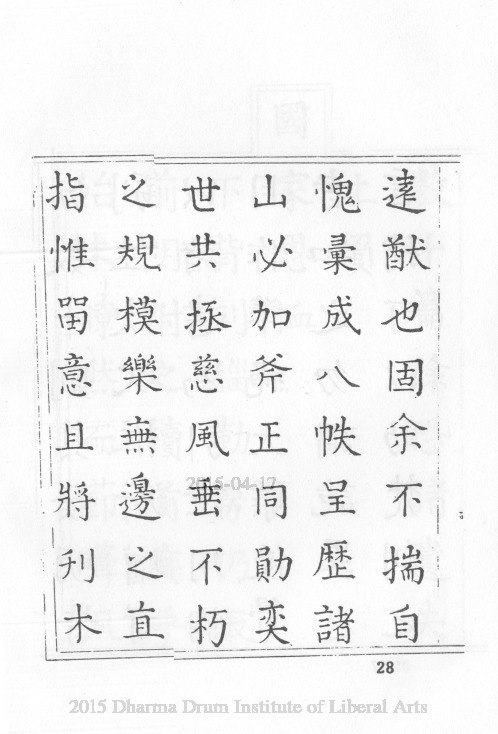 遠猷也固余不揣自
愧彚成八帙呈歷諸
山必加斧正同勛奕
世共拯慈風垂不朽
之規模樂無邊之直
指惟畱意且將刋木
28
2015-04-17
2015 Dharma Drum Institute of Liberal Arts